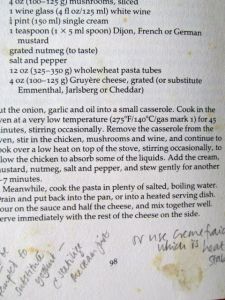 4 oz (100–125 g) mushrooms, sliced
1 wine glass (4 fl oz/125 ml) white wine
¼ pint (150 ml) single cream
1 teaspoon (1 × 5 ml spoon) Dijon, French or German
mustard
grated nutmeg (to taste)
salt and pepper
12 oz (325–350 g) wholewheat pasta tubes
4 oz (100–125 g) Gruyère cheese, grated (or substitute
Emmenthal, Jarlsberg or Cheddar)
ut the onion, garlic and oil into a small casserole. Cook in the
ven at a very low temperature (275°F/140°C/gas mark 1) for 45
inutes, stirring occasionally. Remove the casserole from the
ven, stir in the chicken, mushrooms and wine, and continue to
ook over a low heat on top of the stove, stirring occasionally, to
llow the chicken to absorb some of the liquids. Add the cream,
ustard, nutmeg, salt and pepper, and stew gently for another
–7 minutes.
Meanwhile, cook the pasta in plenty of salted, boiling water.
rain and put back into the pan, or into a heated serving dish.
our on the sauce and half the cheese, and mix together well.
erve immediately with the rest of the cheese on the side.
or use creme fraiche
which is heat
98